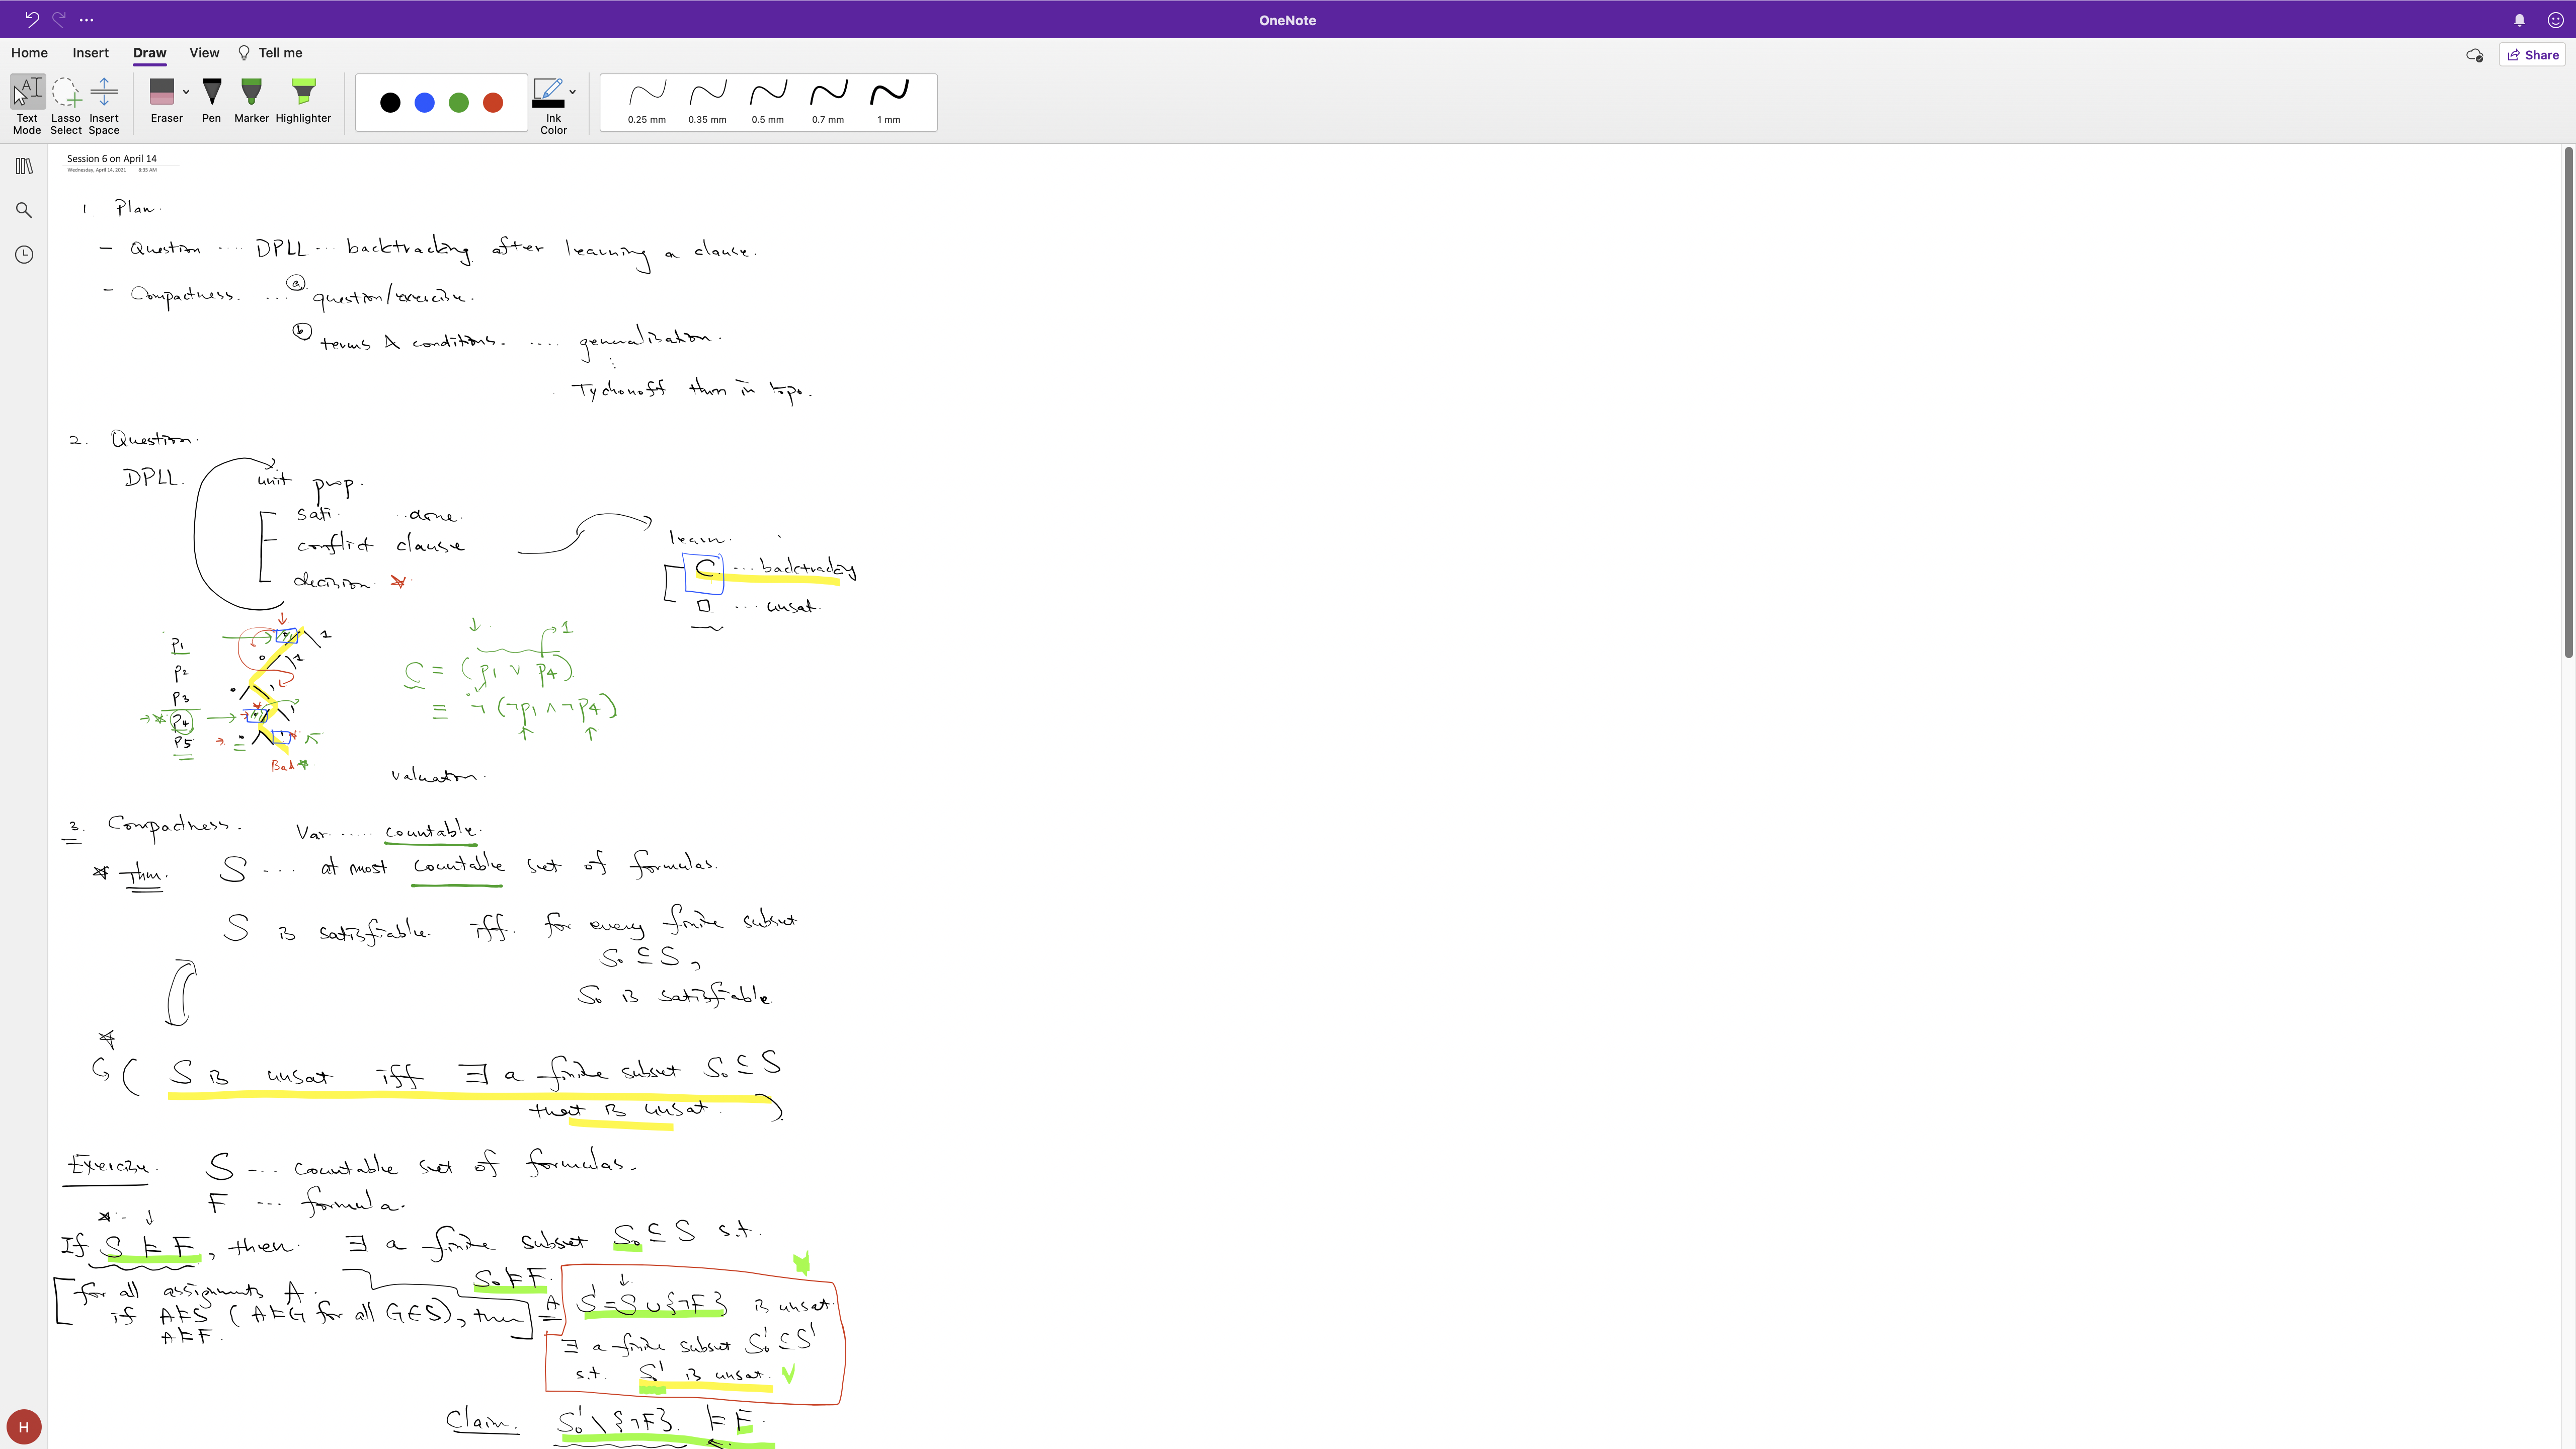 OneNote
Home Insert Draw View Tell me
Share
Text Mode
Lasso Select
Insert Space
Eraser
Pen
Marker
Highlighter
Ink Color
0.25 mm 0.35 mm 0.5 mm 0.7 mm 1 mm
Session 6 on April 14
Wednesday, April 14, 2021 8:35 AM
1. Plan.
- Question .... DPLL ... backtracking after learning a clause.
- Compactness. ... ⓐ question/exercise.
ⓑ terms & conditions. .... generalisation.
Tychonoff thm in topo.
2. Question.
DPLL. unit prop.
sati. ... done.
conflict clause
decision ☆
learn.
C ... backtracking
□ ... unsat.
p1
p2
p3
p4
p5
0 1
0 1
0 1
Bad ☆
C = (p1 ∨ p4)
1
≡ ¬(¬p1 ∧ ¬p4)
valuation.
3. Compactness. Var ..... countable.
☆ Thm. S ... at most countable set of formulas.
S is satisfiable iff. for every finite subset
S₀ ⊆ S,
S₀ is satisfiable.
( S is unsat iff ∃ a finite subset S₀ ⊆ S
that is unsat. )
Exercise. S ... countable set of formulas.
F ... formula.
If S ⊨ F, then ∃ a finite subset S₀ ⊆ S s.t.
S₀ ⊨ F.
[ for all assignments A.
if A⊨S ( A⊨G for all G∈S), then
A⊨F. ]
S' = S ∪ {¬F} is unsat.
∃ a finite subset S₀' ⊆ S'
s.t. S₀' is unsat.
Claim. S₀' \ {¬F}. ⊨ F.
H